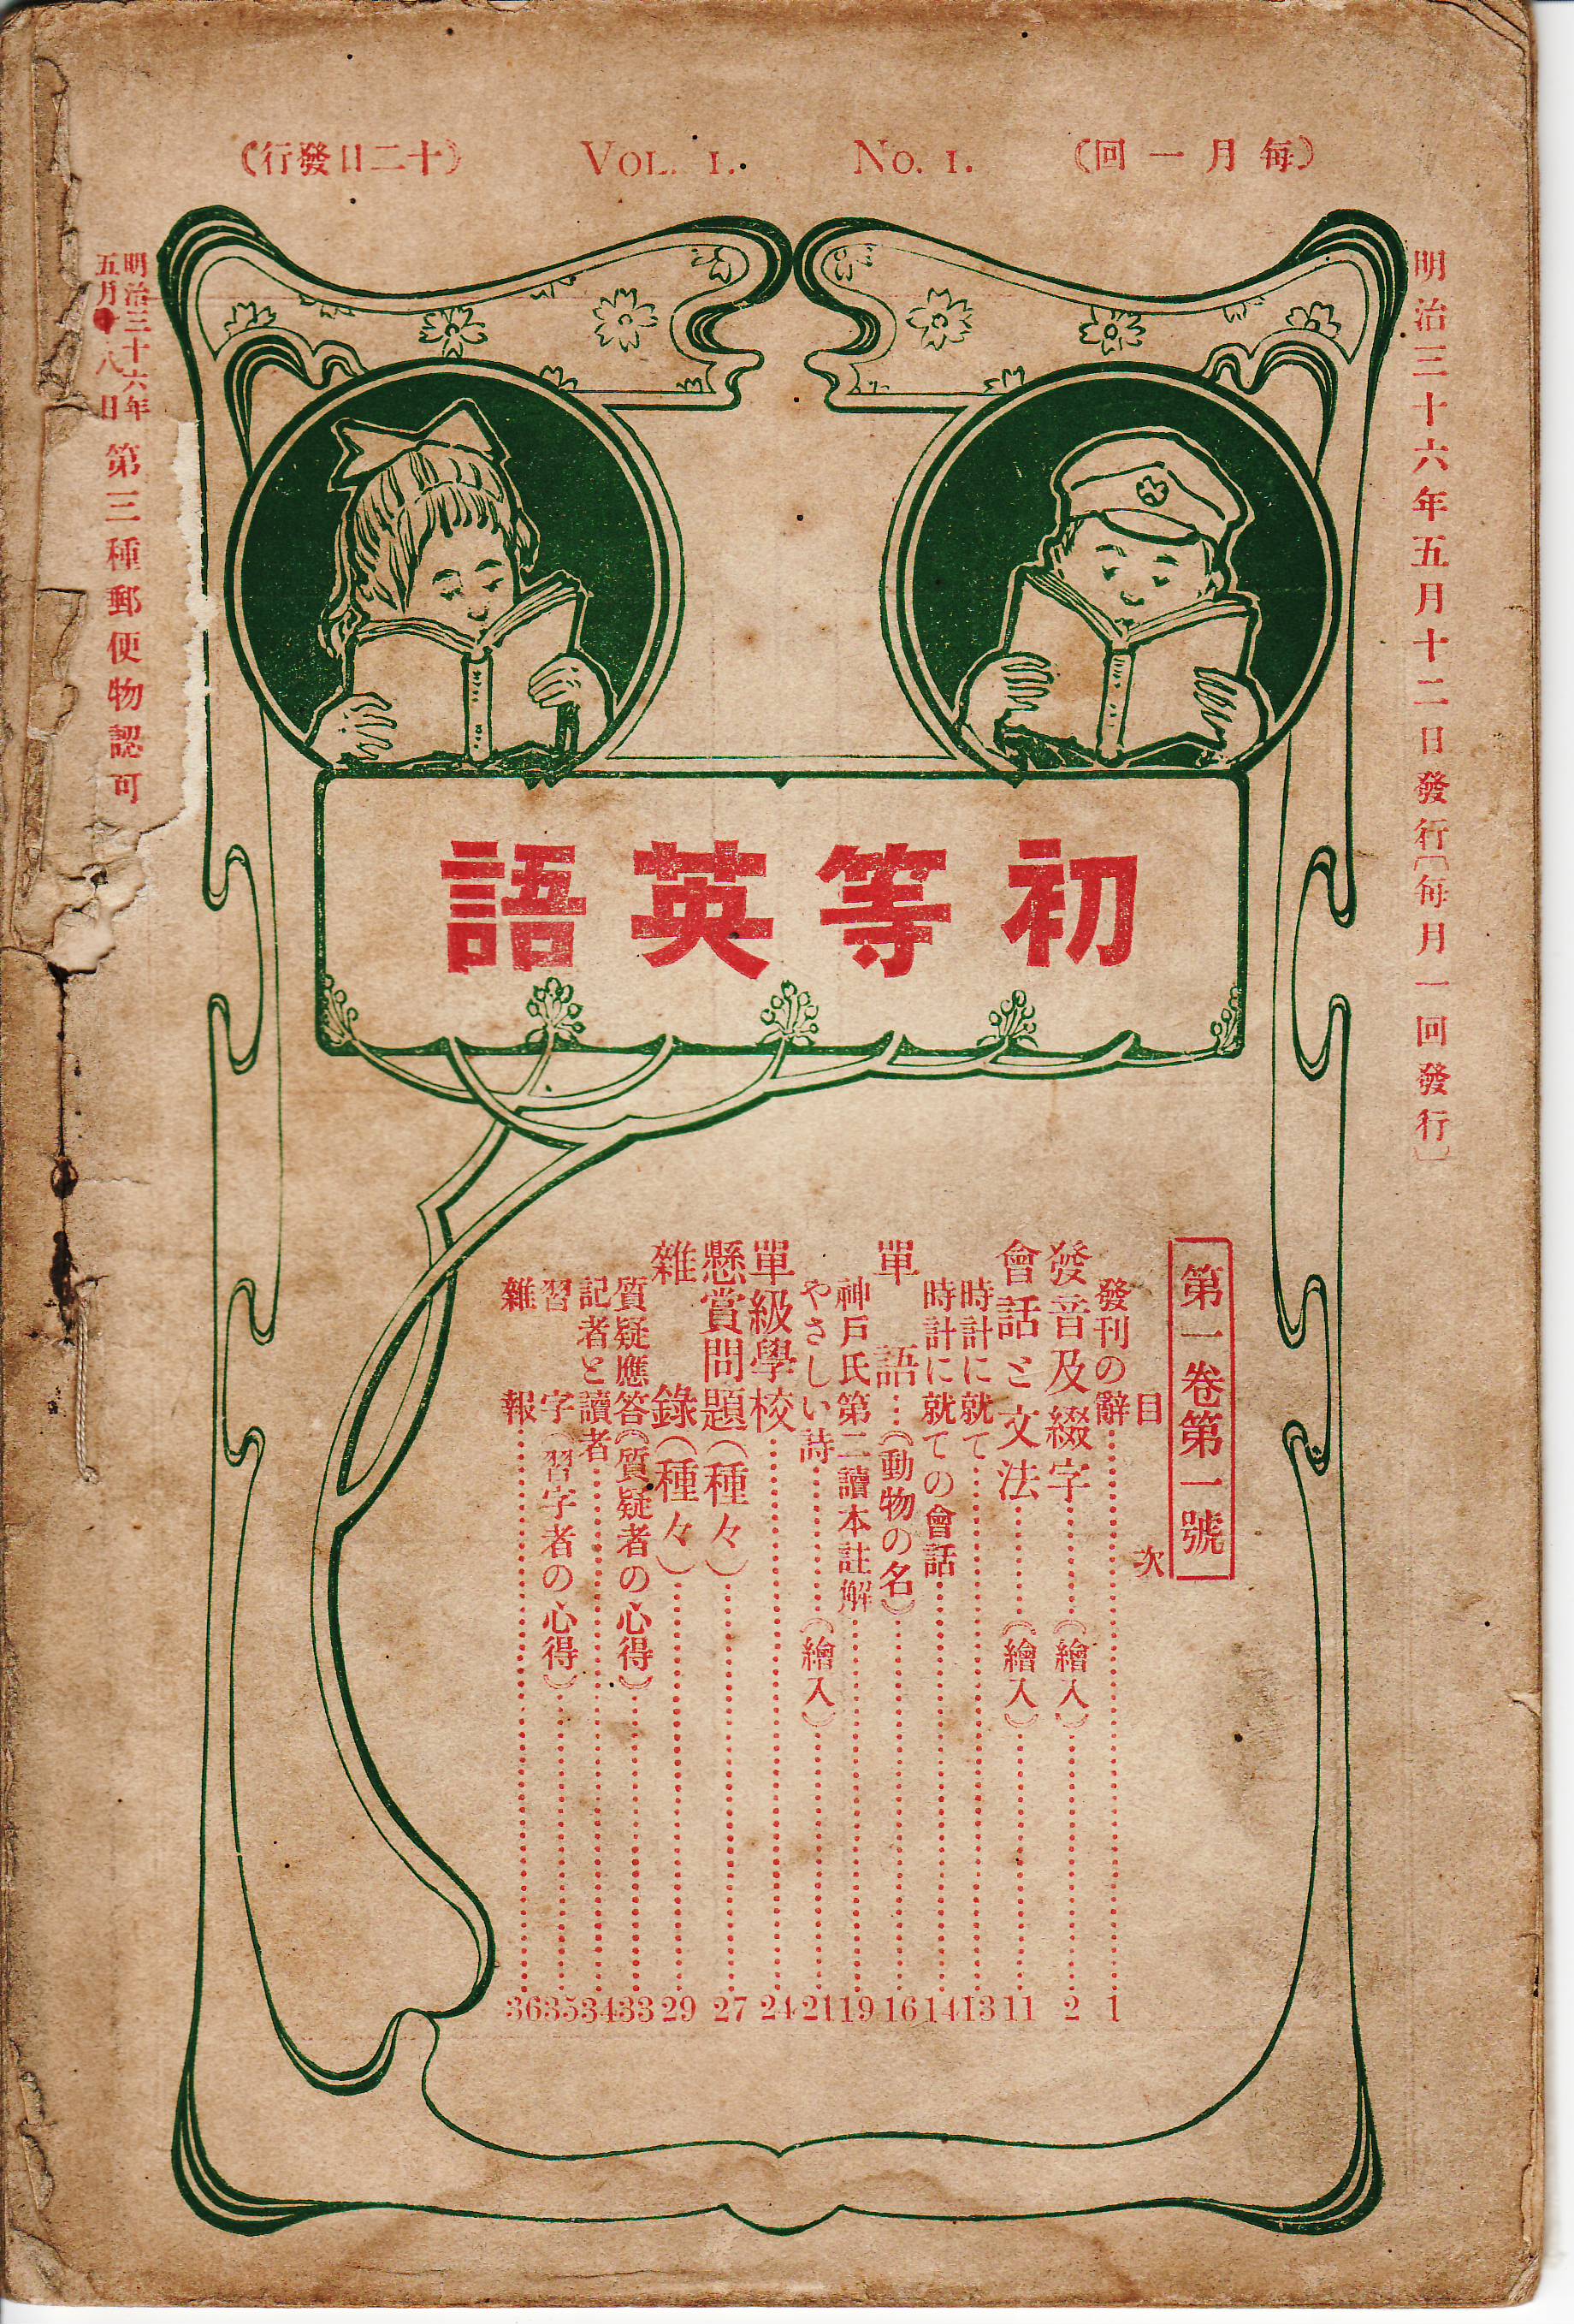 (毎月一回)
No. 1.
Vol. 1.
(十二日發行)
明治三十六年五月十二日發行〔毎月一回發行〕
明治三十六年
五月十八日
第三種郵便物認可
初等英語
第一卷第一號
目次
發刊の辭……1
發音及綴字……(繪入)……2
會話と文法……(繪入)……11
時計に就て……13
時計に就ての會話……14
單語…(動物の名)……16
神戸氏第二讀本註解……19
やさしい詩……(繪入)……21
單級學校……24
懸賞問題(種々)……27
雜錄(種々)……29
質疑應答(質疑者の心得)……33
記者と讀者……34
習字(習字者の心得)……35
雜報……36